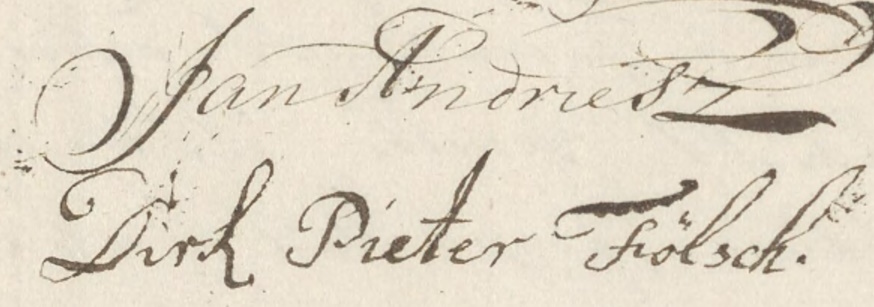 Jan Andriesz
Dirk Pieter Fölsch.